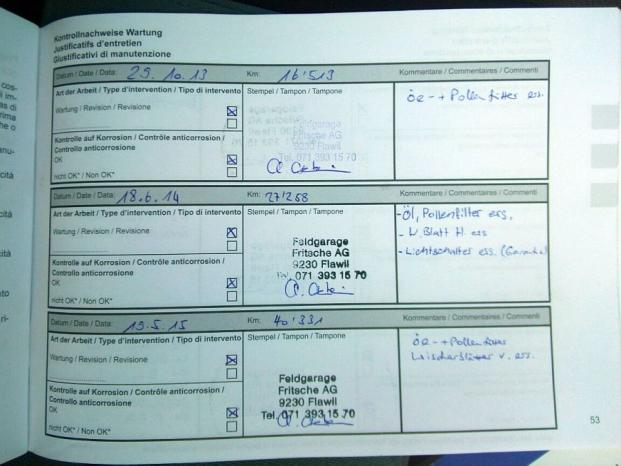 Kontrollnachweise Wartung
Justificatifs d'entretien
Giustificativi di manutenzione
Datum / Date / Data: 29.10.13 Km: 16'513 Kommentare / Commentaires / Commenti
Art der Arbeit / Type d'intervention / Tipo di intervento Stempel / Tampon / Tampone
Wartung / Revision / Revisione
Kontrolle auf Korrosion / Contrôle anticorrosion /
Controllo anticorrosione
OK
nicht OK* / Non OK*
Feldgarage
Fritsche AG
9230 Flawil
Tel. 071 393 15 70
Öl- + Pollenfilter ers.
Datum / Date / Data: 18.6.14 Km: 27'268 Kommentare / Commentaires / Commenti
Art der Arbeit / Type d'intervention / Tipo di intervento Stempel / Tampon / Tampone
Wartung / Revision / Revisione
Kontrolle auf Korrosion / Contrôle anticorrosion /
Controllo anticorrosione
OK
nicht OK* / Non OK*
Feldgarage
Fritsche AG
9230 Flawil
Tel. 071 393 15 70
- Öl, Pollenfilter ers.
- W. Blatt H. ers
- Lichtschalter ers. (Garantie)
Datum / Date / Data: 19.5.15 Km: 40'331 Kommentare / Commentaires / Commenti
Art der Arbeit / Type d'intervention / Tipo di intervento Stempel / Tampon / Tampone
Wartung / Revision / Revisione
Kontrolle auf Korrosion / Contrôle anticorrosion /
Controllo anticorrosione
OK
nicht OK* / Non OK*
Feldgarage
Fritsche AG
9230 Flawil
Tel. 071 393 15 70
Öl- + Pollenfilter
Wischerblätter v. ers.
53